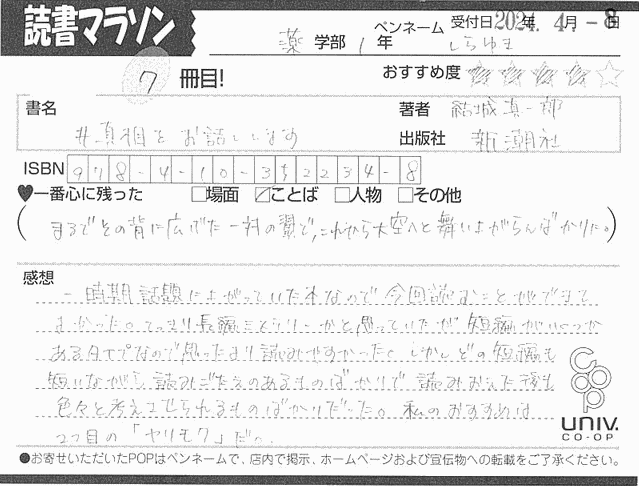 読書マラソン
ペンネーム 受付日 2024年 4月 -8日
薬 学部 1 年 しらゆき
7 冊目! おすすめ度 ★★★★☆
書名 著者 結城真一郎
#真相をお話しします 出版社 新潮社
ISBN 978-4-10-352234-8
♥一番心に残った □場面 ☑ことば □人物 □その他
(まるでその背に広げた一対の翼で、これから大空へと舞い上がらんばかりに。)
感想
一時期話題に上がっていた本なので今回読むことができて
よかった。てっきり長編ミステリーかと思っていたが短編がいくつか
あるタイプなので思ったより読みやすかった。しかしどの短編も
短いながら読みごたえのあるものばかりで読みおえた後も
色々と考えさせられるものばかりだった。私のおすすめは
2つ目の「ヤリモク」だ。
coop
UNIV.
CO-OP
●お寄せいただいたPOPはペンネームで、店内で掲示、ホームページおよび宣伝物への転載をご了承ください。